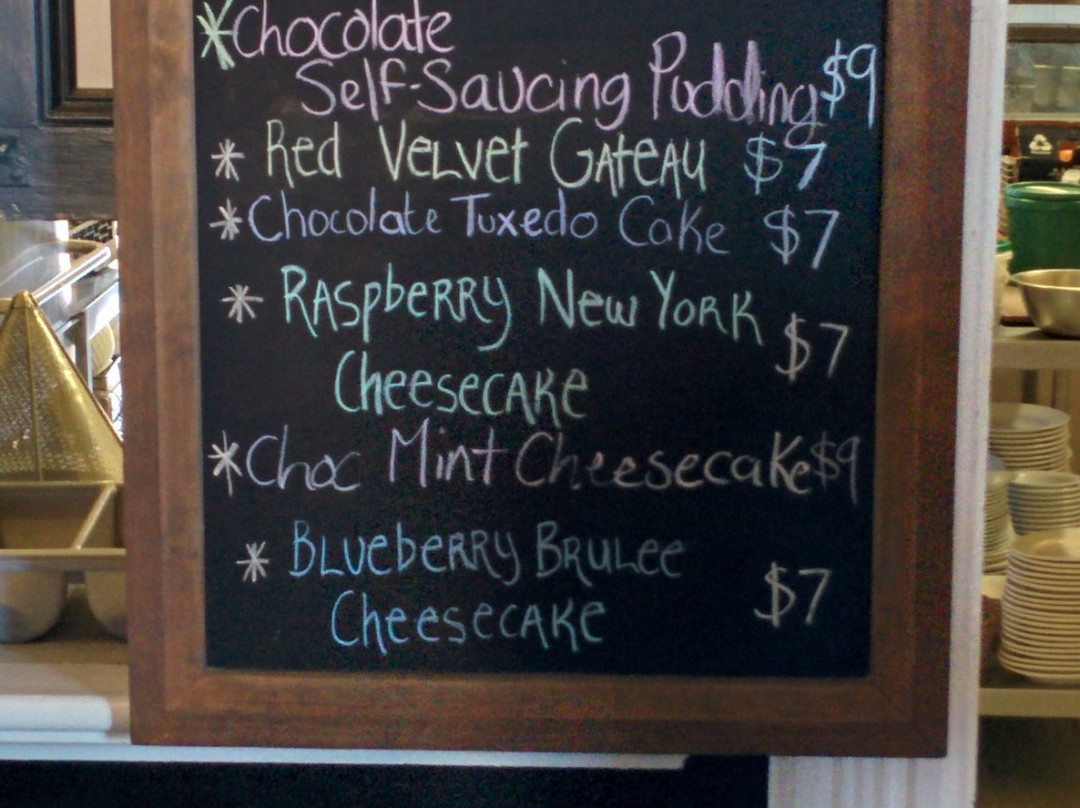 *Chocolate
Self-Saucing Pudding $9
* Red Velvet Gateau $7
* Chocolate Tuxedo Cake $7
* Raspberry New York
$7
Cheesecake
*Choc Mint Cheesecake $9
* Blueberry Brulee
Cheesecake $7